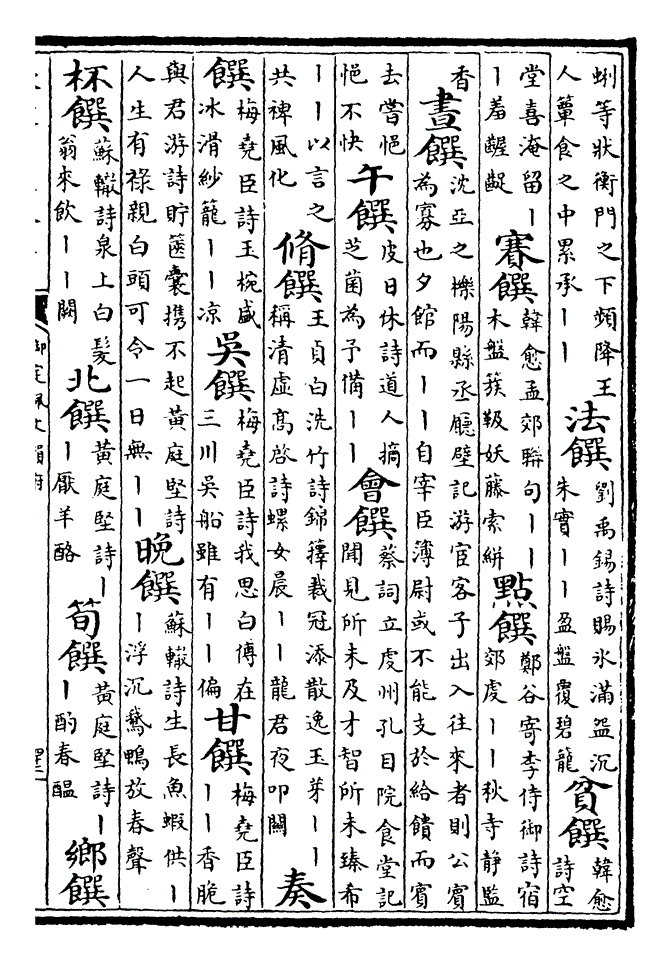 蜊等狀衡門之下頻降王
人簞食之中累承丨丨
法饌
劉禹錫詩賜氷滿盌沉
朱實丨丨盈盤覆碧籠
貧饌
韓愈
詩空
堂喜淹留丨
丨羞齷齪
賽饌
韓愈孟郊聯句丨丨
木盤簇靸妖藤索絣
點饌
鄭谷寄李侍御詩宿
郊虔丨丨秋寺静監
香
晝饌
沈亞之櫟陽縣丞廳壁記游宦客子出入往來者則公賓
為寡也夕館而丨丨自宰臣簿尉或不能支於給饋而賓
去嘗悒
悒不快
午饌
皮日休詩道人摘
芝菌為予備丨丨
會饌
蔡詞立虔州孔目院食堂記
聞見所未及才智所未臻布
丨丨以言之
共裨風化
脩饌
王貞白洗竹詩錦籜裁冠添散逸玉芽丨丨
稱清虛高啟詩螺女晨丨丨龍君夜叩關
奏
饌
梅堯臣詩玉椀盛
冰滑紗籠丨丨凉
吳饌
梅堯臣詩我思白傅在
三川吳船雖有丨丨偏
甘饌
梅堯臣詩
丨丨香脆
與君游詩貯篋囊携不起黄庭堅詩
人生有禄親白頭可令一日無丨丨
晚饌
蘇轍詩生長魚蝦供丨
丨浮沉鵝鴨放春聲
杯饌
蘇轍詩泉上白髮
翁來飲丨丨闕
北饌
黄庭堅詩丨
丨厭羊酪
筍饌
黄庭堅詩丨
丨酌春醖
鄉饌